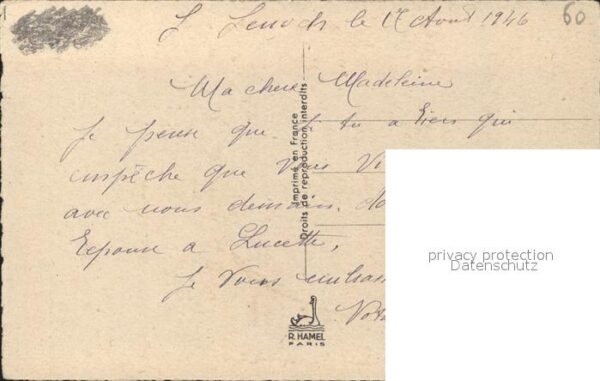 le 17 Août 1946
60
Ma chere Madeleine
Je pense que si tu a rien qui
empêche que vous
avec nous demain.
Reponse a Lucette,
Je Vous
Imprimé en France
Droits de reproduction interdits
R. HAMEL
PARIS
privacy protection
Datenschutz